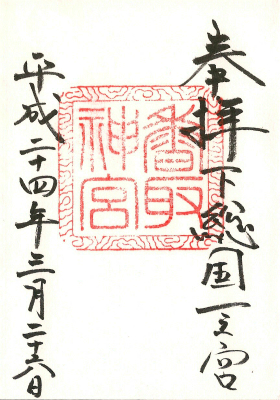 奉拝下総国一之宮
香取神宮
平成二十四年三月二十六日